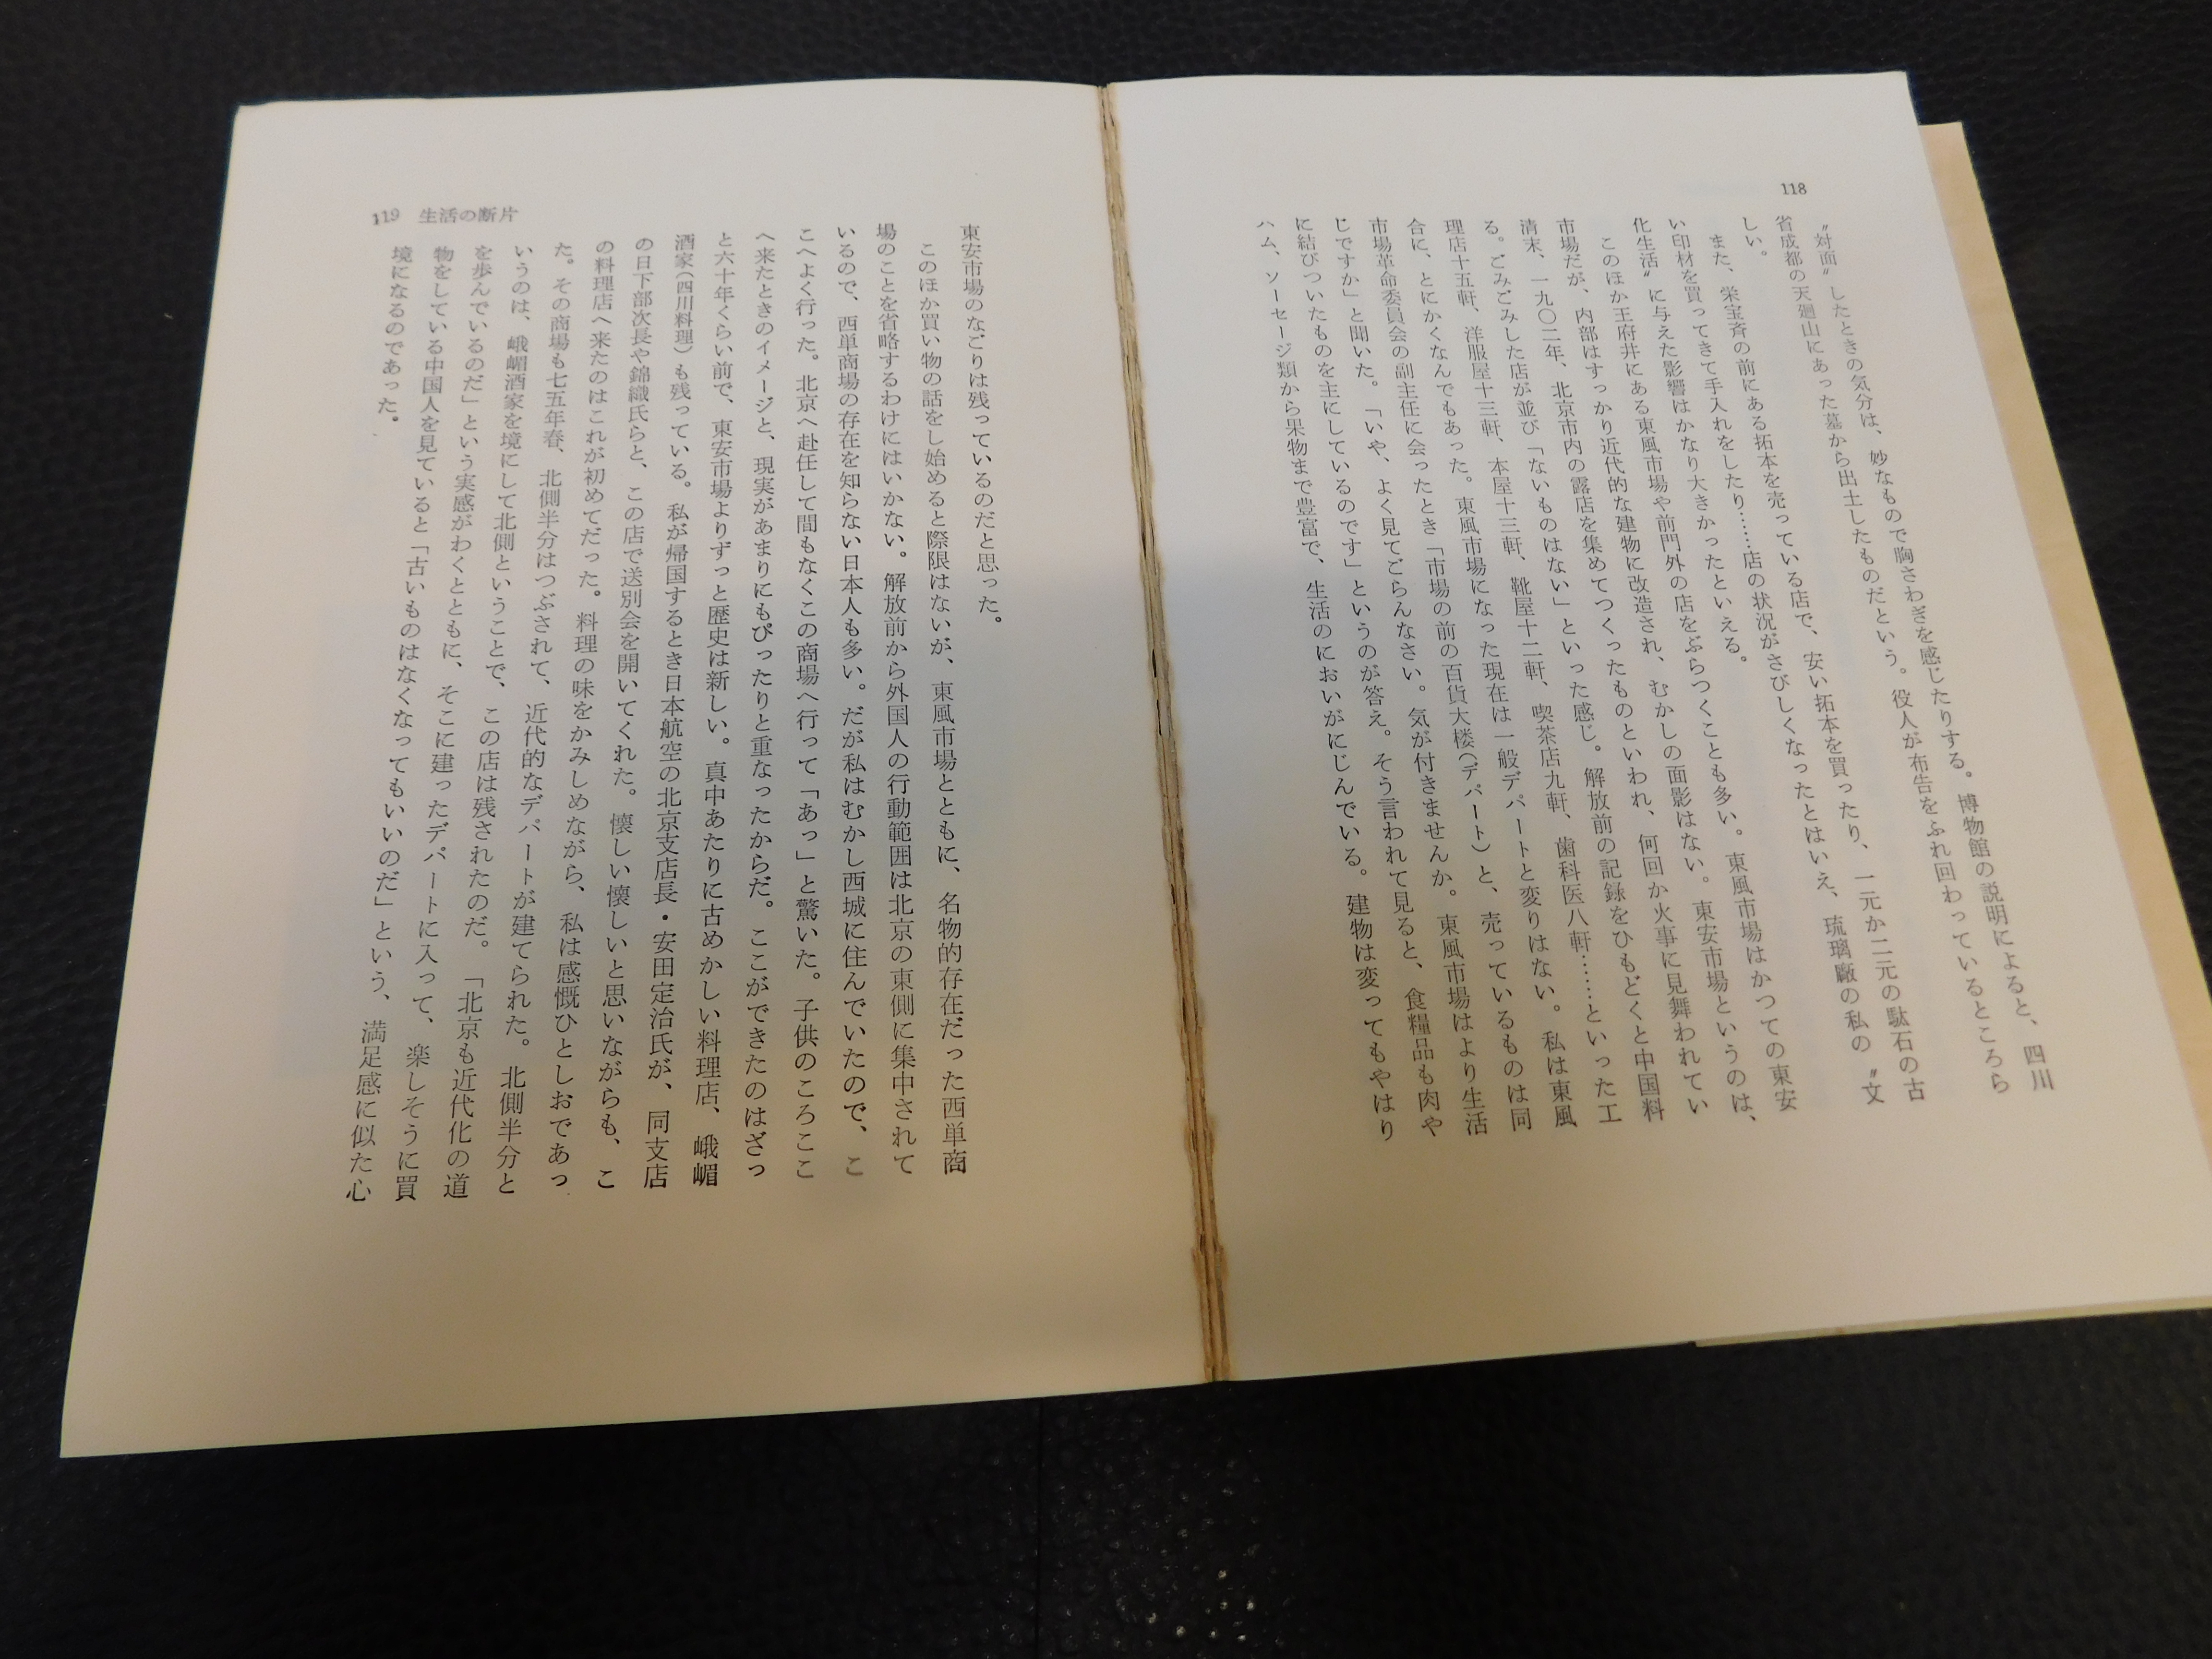 118
〝対面〟したときの気分は、妙なもので胸さわぎを感じたりする。博物館の説明によると、四川
省成都の天廻山にあった墓から出土したものだという。役人が布告をふれ回わっているところら
しい。
また、栄宝斉の前にある拓本を売っている店で、安い拓本を買ったり、一元か二元の駄石の古
い印材を買ってきて手入れをしたり……店の状況がさびしくなったとはいえ、琉璃廠の私の〝文
化生活〟に与えた影響はかなり大きかったといえる。
このほか王府井にある東風市場や前門外の店をぶらつくことも多い。東風市場はかつての東安
市場だが、内部はすっかり近代的な建物に改造され、むかしの面影はない。東安市場というのは、
清末、一九〇二年、北京市内の露店を集めてつくったものといわれ、何回か火事に見舞われてい
る。ごみごみした店が並び「ないものはない」といった感じ。解放前の記録をひもどくと中国料
理店十五軒、洋服屋十三軒、本屋十三軒、靴屋十二軒、喫茶店九軒、歯科医八軒……といった工
合に、とにかくなんでもあった。東風市場になった現在は一般デパートと変りはない。私は東風
市場革命委員会の副主任に会ったとき「市場の前の百貨大楼(デパート)と、売っているものは同
じですか」と聞いた。「いや、よく見てごらんなさい。気が付きませんか。東風市場はより生活
に結びついたものを主にしているのです」というのが答え。そう言われて見ると、食糧品も肉や
ハム、ソーセージ類から果物まで豊富で、生活のにおいがにじんでいる。建物は変ってもやはり
東安市場のなごりは残っているのだと思った。
このほか買い物の話をし始めると際限はないが、東風市場とともに、名物的存在だった西単商
場のことを省略するわけにはいかない。解放前から外国人の行動範囲は北京の東側に集中されて
いるので、西単商場の存在を知らない日本人も多い。だが私はむかし西城に住んでいたので、こ
こへよく行った。北京へ赴任して間もなくこの商場へ行って「あっ」と驚いた。子供のころここ
へ来たときのイメージと、現実があまりにもぴったりと重なったからだ。ここができたのはざっ
と六十年くらい前で、東安市場よりずっと歴史は新しい。真中あたりに古めかしい料理店、峨嵋
酒家(四川料理)も残っている。私が帰国するとき日本航空の北京支店長・安田定治氏が、同支店
の日下部次長や錦織氏らと、この店で送別会を開いてくれた。懐しい懐しいと思いながらも、こ
の料理店へ来たのはこれが初めてだった。料理の味をかみしめながら、私は感慨ひとしおであっ
た。その商場も七五年春、北側半分はつぶされて、近代的なデパートが建てられた。北側半分と
いうのは、峨嵋酒家を境にして北側ということで、この店は残されたのだ。「北京も近代化の道
を歩んでいるのだ」という実感がわくとともに、そこに建ったデパートに入って、楽しそうに買
物をしている中国人を見ていると「古いものはなくなってもいいのだ」という、満足感に似た心
境になるのであった。
119 生活の断片